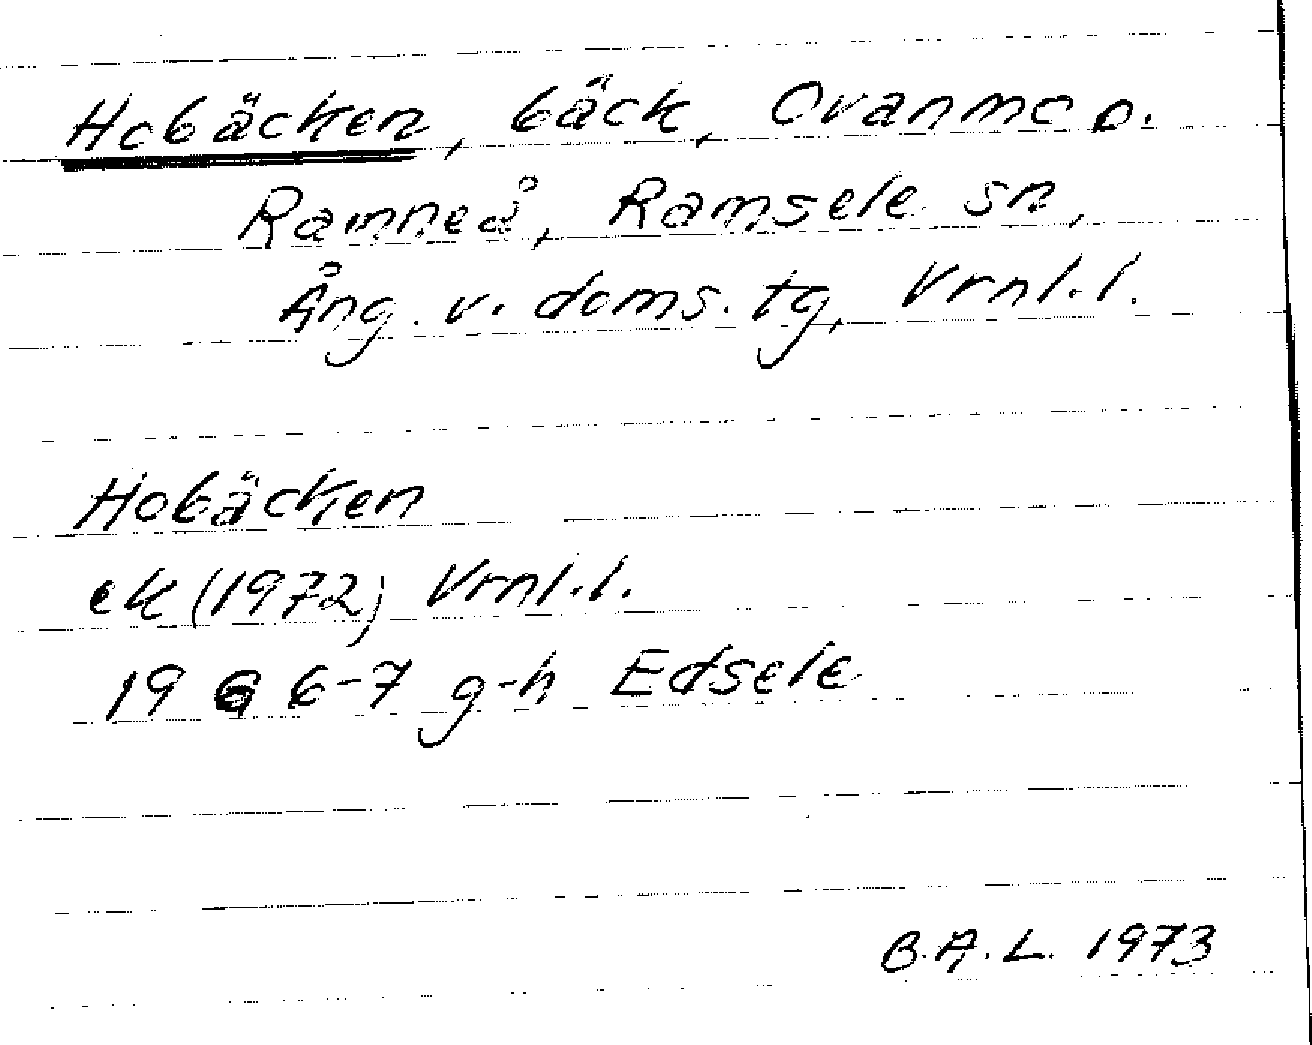 Hobäcken, bäck, Ovanmo o.
Ramneå, Ramsele sn,
Ång. v. doms. tg, Vrnl. l.
Hobäcken
ek (1972) Vrnl. l.
19 G 6-7 g-h Edsele
B.A.L. 1973